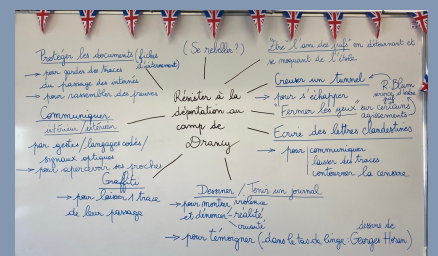 Protéger les documents (fiches
d'internement)
→ pour garder des traces
du passage des internés
→ pour rassembler des preuves
Communiquer
intérieur/extérieur
par gestes/langages codés/
signaux optiques
→ pour apercevoir ses proches
Graffiti
→ pour laisser 1 trace
de leur passage
(Se rebeller?)
Résister à la
déportation au
camp de
Drancy
Dessiner / Tenir un journal
→ pour montrer violence
et dénoncer réalité
cruauté
→ pour témoigner (dans le tas de linge : Georges Horan)
dessins de
Être l'ami des juifs en détournant et
se moquant de l'étoile
Creuser un tunnel
→ pour s'échapper
R. Blum
"Fermer les yeux" sur certains
agissements
Ecrire des lettres clandestines
→ pour communiquer
laisser des traces
contourner la censure